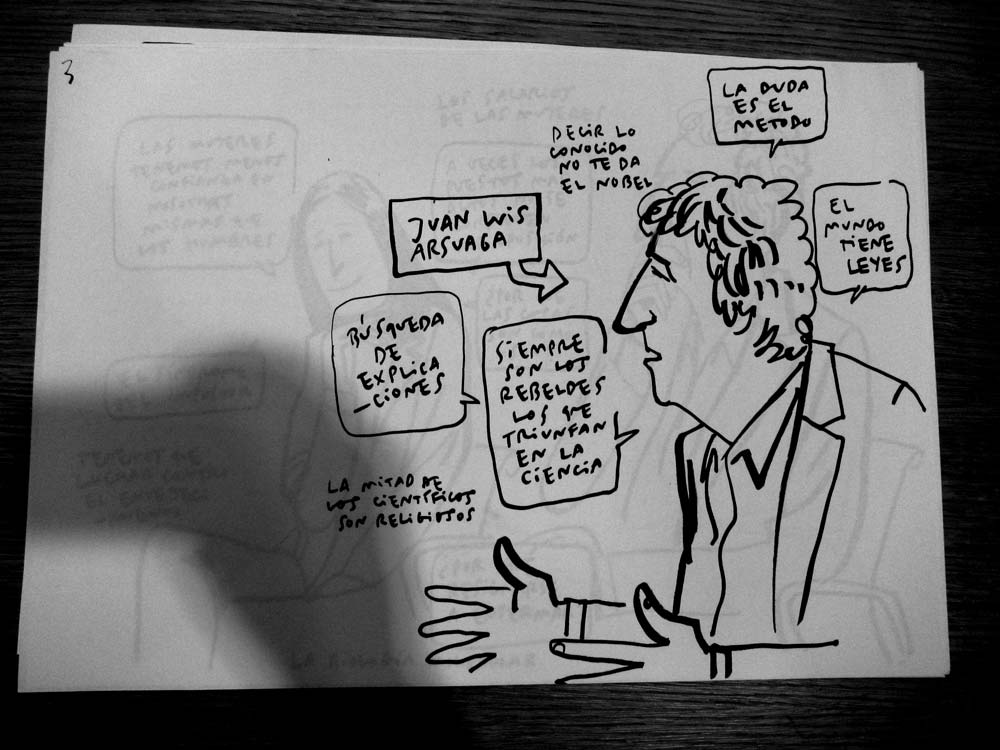 3
LA DUDA
ES EL
METODO
DECIR LO
CONOCIDO
NO TE DA
EL NOBEL
JUAN LUIS
ARSUAGA
EL
MUNDO
TIENE
LEYES
BÚSQUEDA
DE
EXPLICA
-CIONES
SIEMPRE
SON LOS
REBELDES
LOS QUE
TRIUNFAN
EN LA
CIENCIA
LA MITAD DE
LOS CIENTÍFICOS
SON RELIGIOSOS
LOS SALARIOS
DE LAS MUJERES
LAS MUJERES
TIENEN MENOS
CONFIANZA EN
NOSOTRAS
MISMAS QUE
LOS HOMBRES